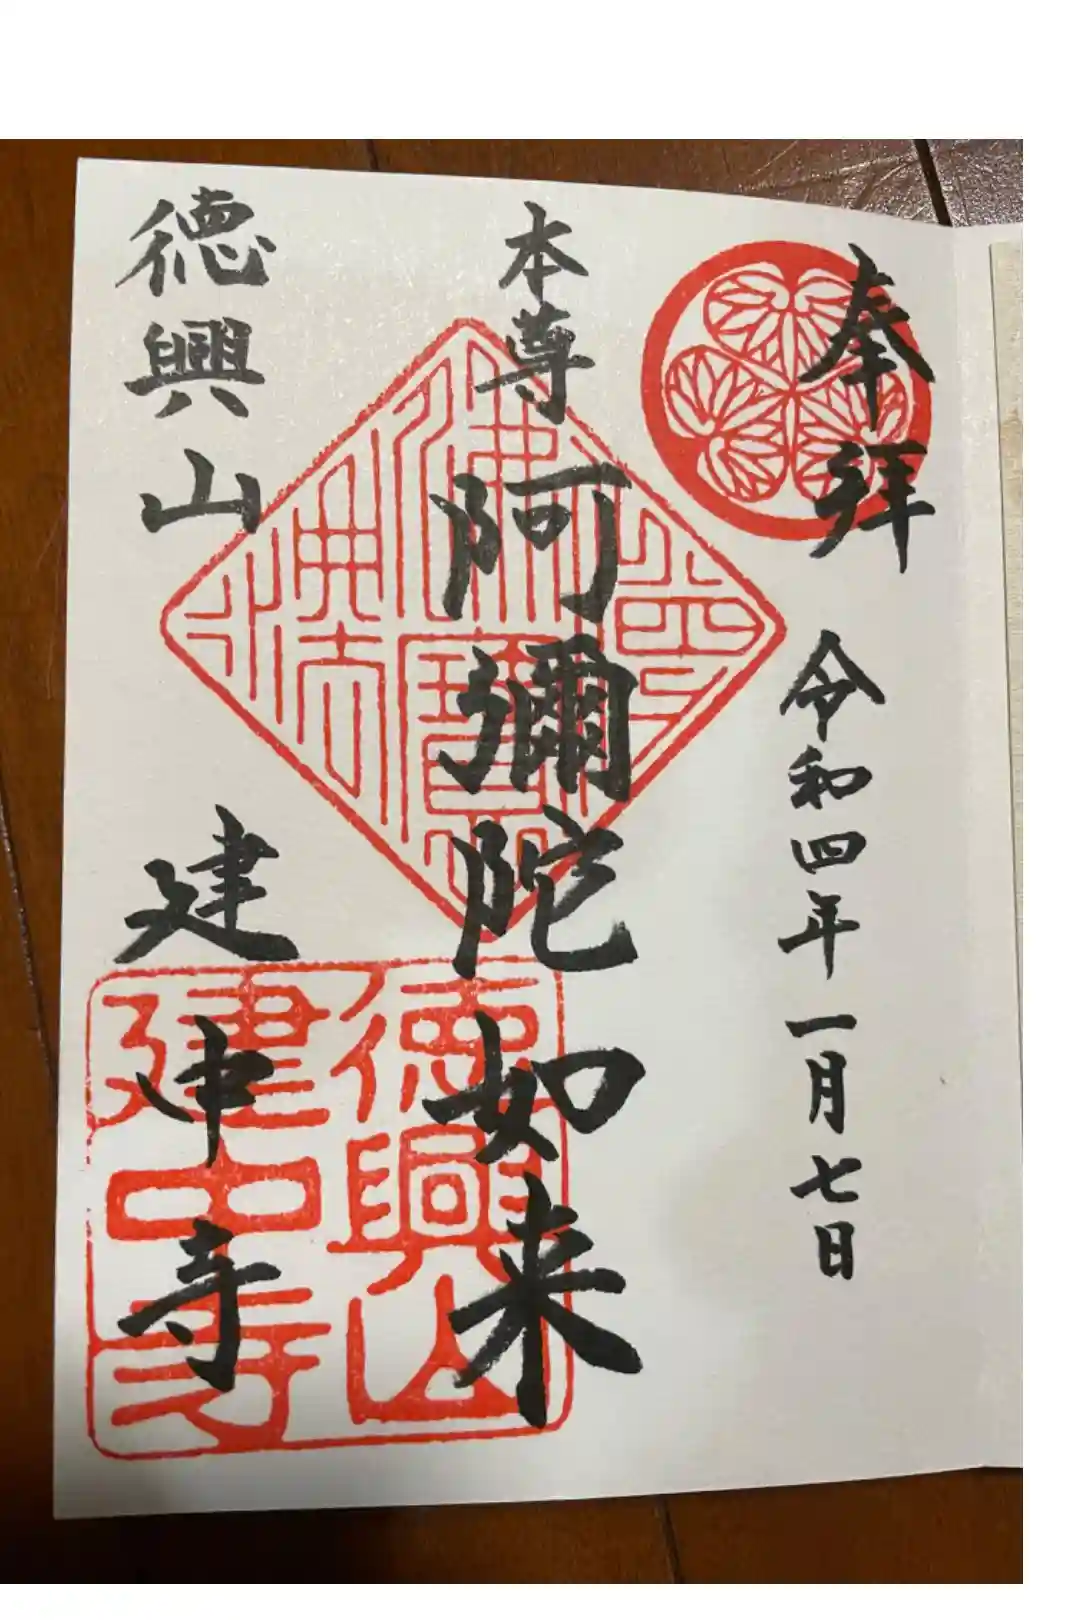 奉拜
令和四年一月七日
本尊
阿彌陀如来
徳興山
建中寺
佛法僧寶
徳興山
建中寺